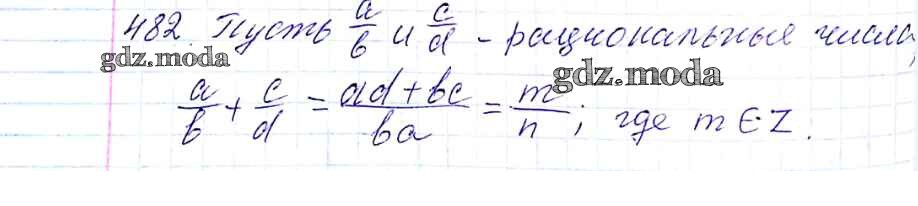 482. Пусть a/b и c/d - рациональные числа,
gdz.moda
gdz.moda
a/b + c/d = ad+bc/ba = m/n; где m ∈ Z.